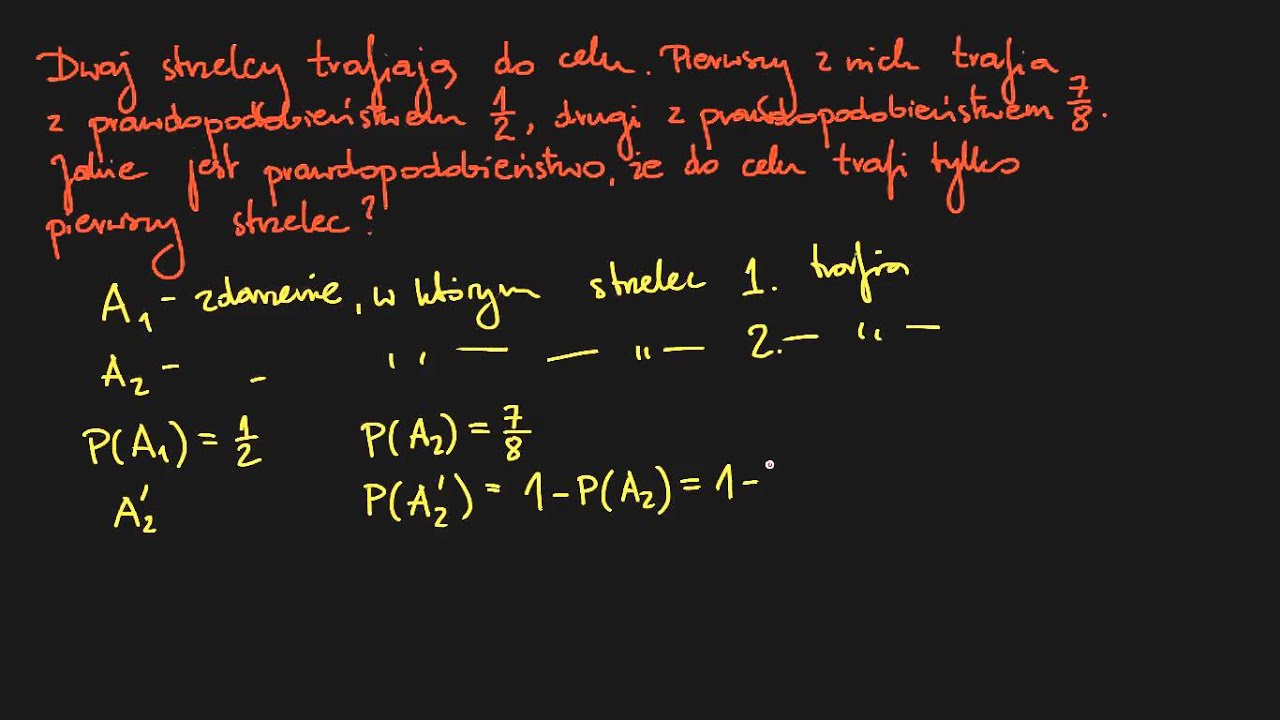 Dwaj strzelcy trafiają do celu. Pierwszy z nich trafia
z prawdopodobieństwem 1/2, drugi z prawdopodobieństwem 7/8.
Jakie jest prawdopodobieństwo, że do celu trafi tylko
pierwszy strzelec?
A₁ - zdarzenie, w którym strzelec 1. trafia
A₂ - - ,, — — ,, — 2. — ,, —
P(A₁) = 1/2 P(A₂) = 7/8
A₂' P(A₂') = 1 - P(A₂) = 1 -